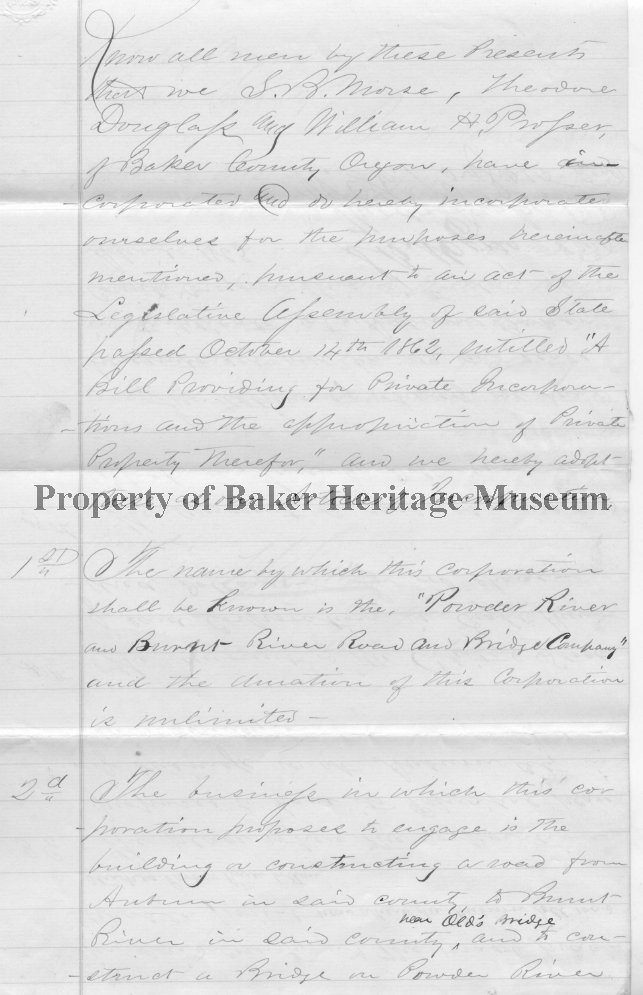 Know all men by these Presents
that we S. B. Morse, Theodore
Douglass and William H. Prosser,
of Baker County Oregon, have in-
-corporated and do hereby incorporate
ourselves for the purposes hereinafter
mentioned, pursuant to an act of the
Legislative Assembly of said State
passed October 14th 1862, entitled "A
Bill Providing for Private Incorpora-
-tions and the appropriation of Private
Property Therefor," and we hereby adopt
Property of Baker Heritage Museum
as our Incorporation
1st The name by which this corporation
shall be known is the, "Powder River
and Burnt River Road and Bridge Company"
and the duration of this Corporation
is unlimited —
2d The business in which this cor
-poration proposes to engage is the
building or constructing a road from
Auburn in said county, to Burnt
near Old's Bridge
River in said county, and to con-
-struct a Bridge on Powder River